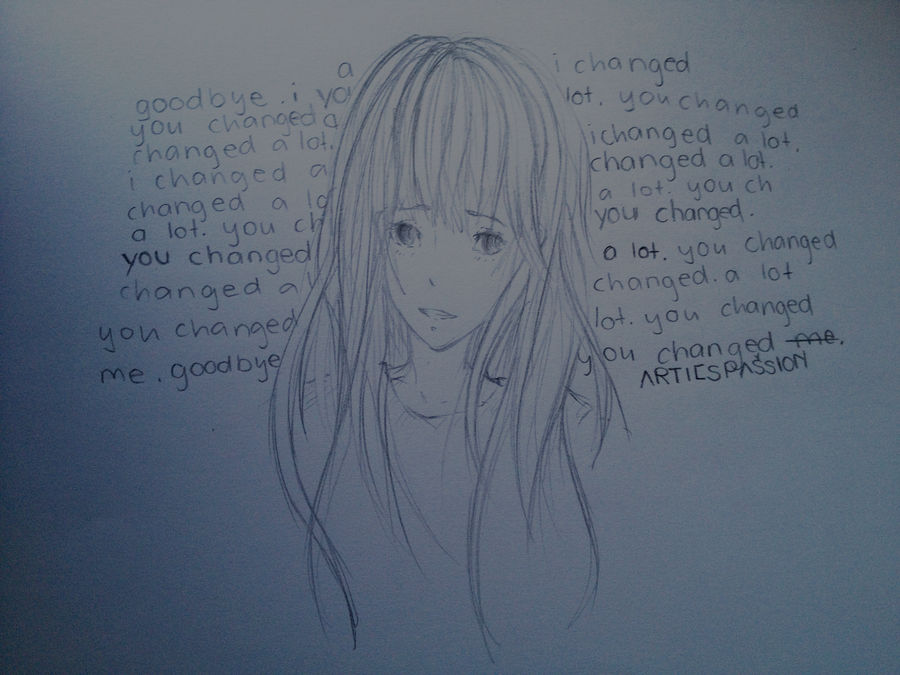 a i changed
goodbye. i you lot. you changed
you changed a i changed a lot.
changed a lot. changed a lot.
i changed a a lot. you ch
changed a lo you changed.
a lot. you ch a lot. you changed
you changed changed. a lot
changed a l lot. you changed
you changed you changed me.
me. goodbye ARTIESPASSION